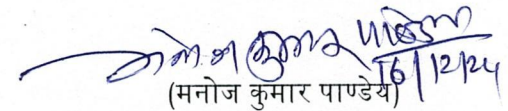 मनोज कुमार पाण्डेय
16/12/24
(मनोज कुमार पाण्डेय)